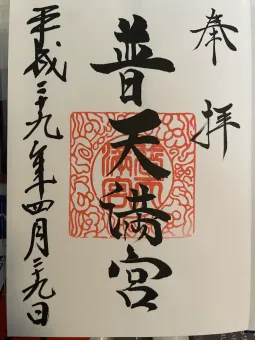 奉拝
普天満宮
平成二十九年四月二九日